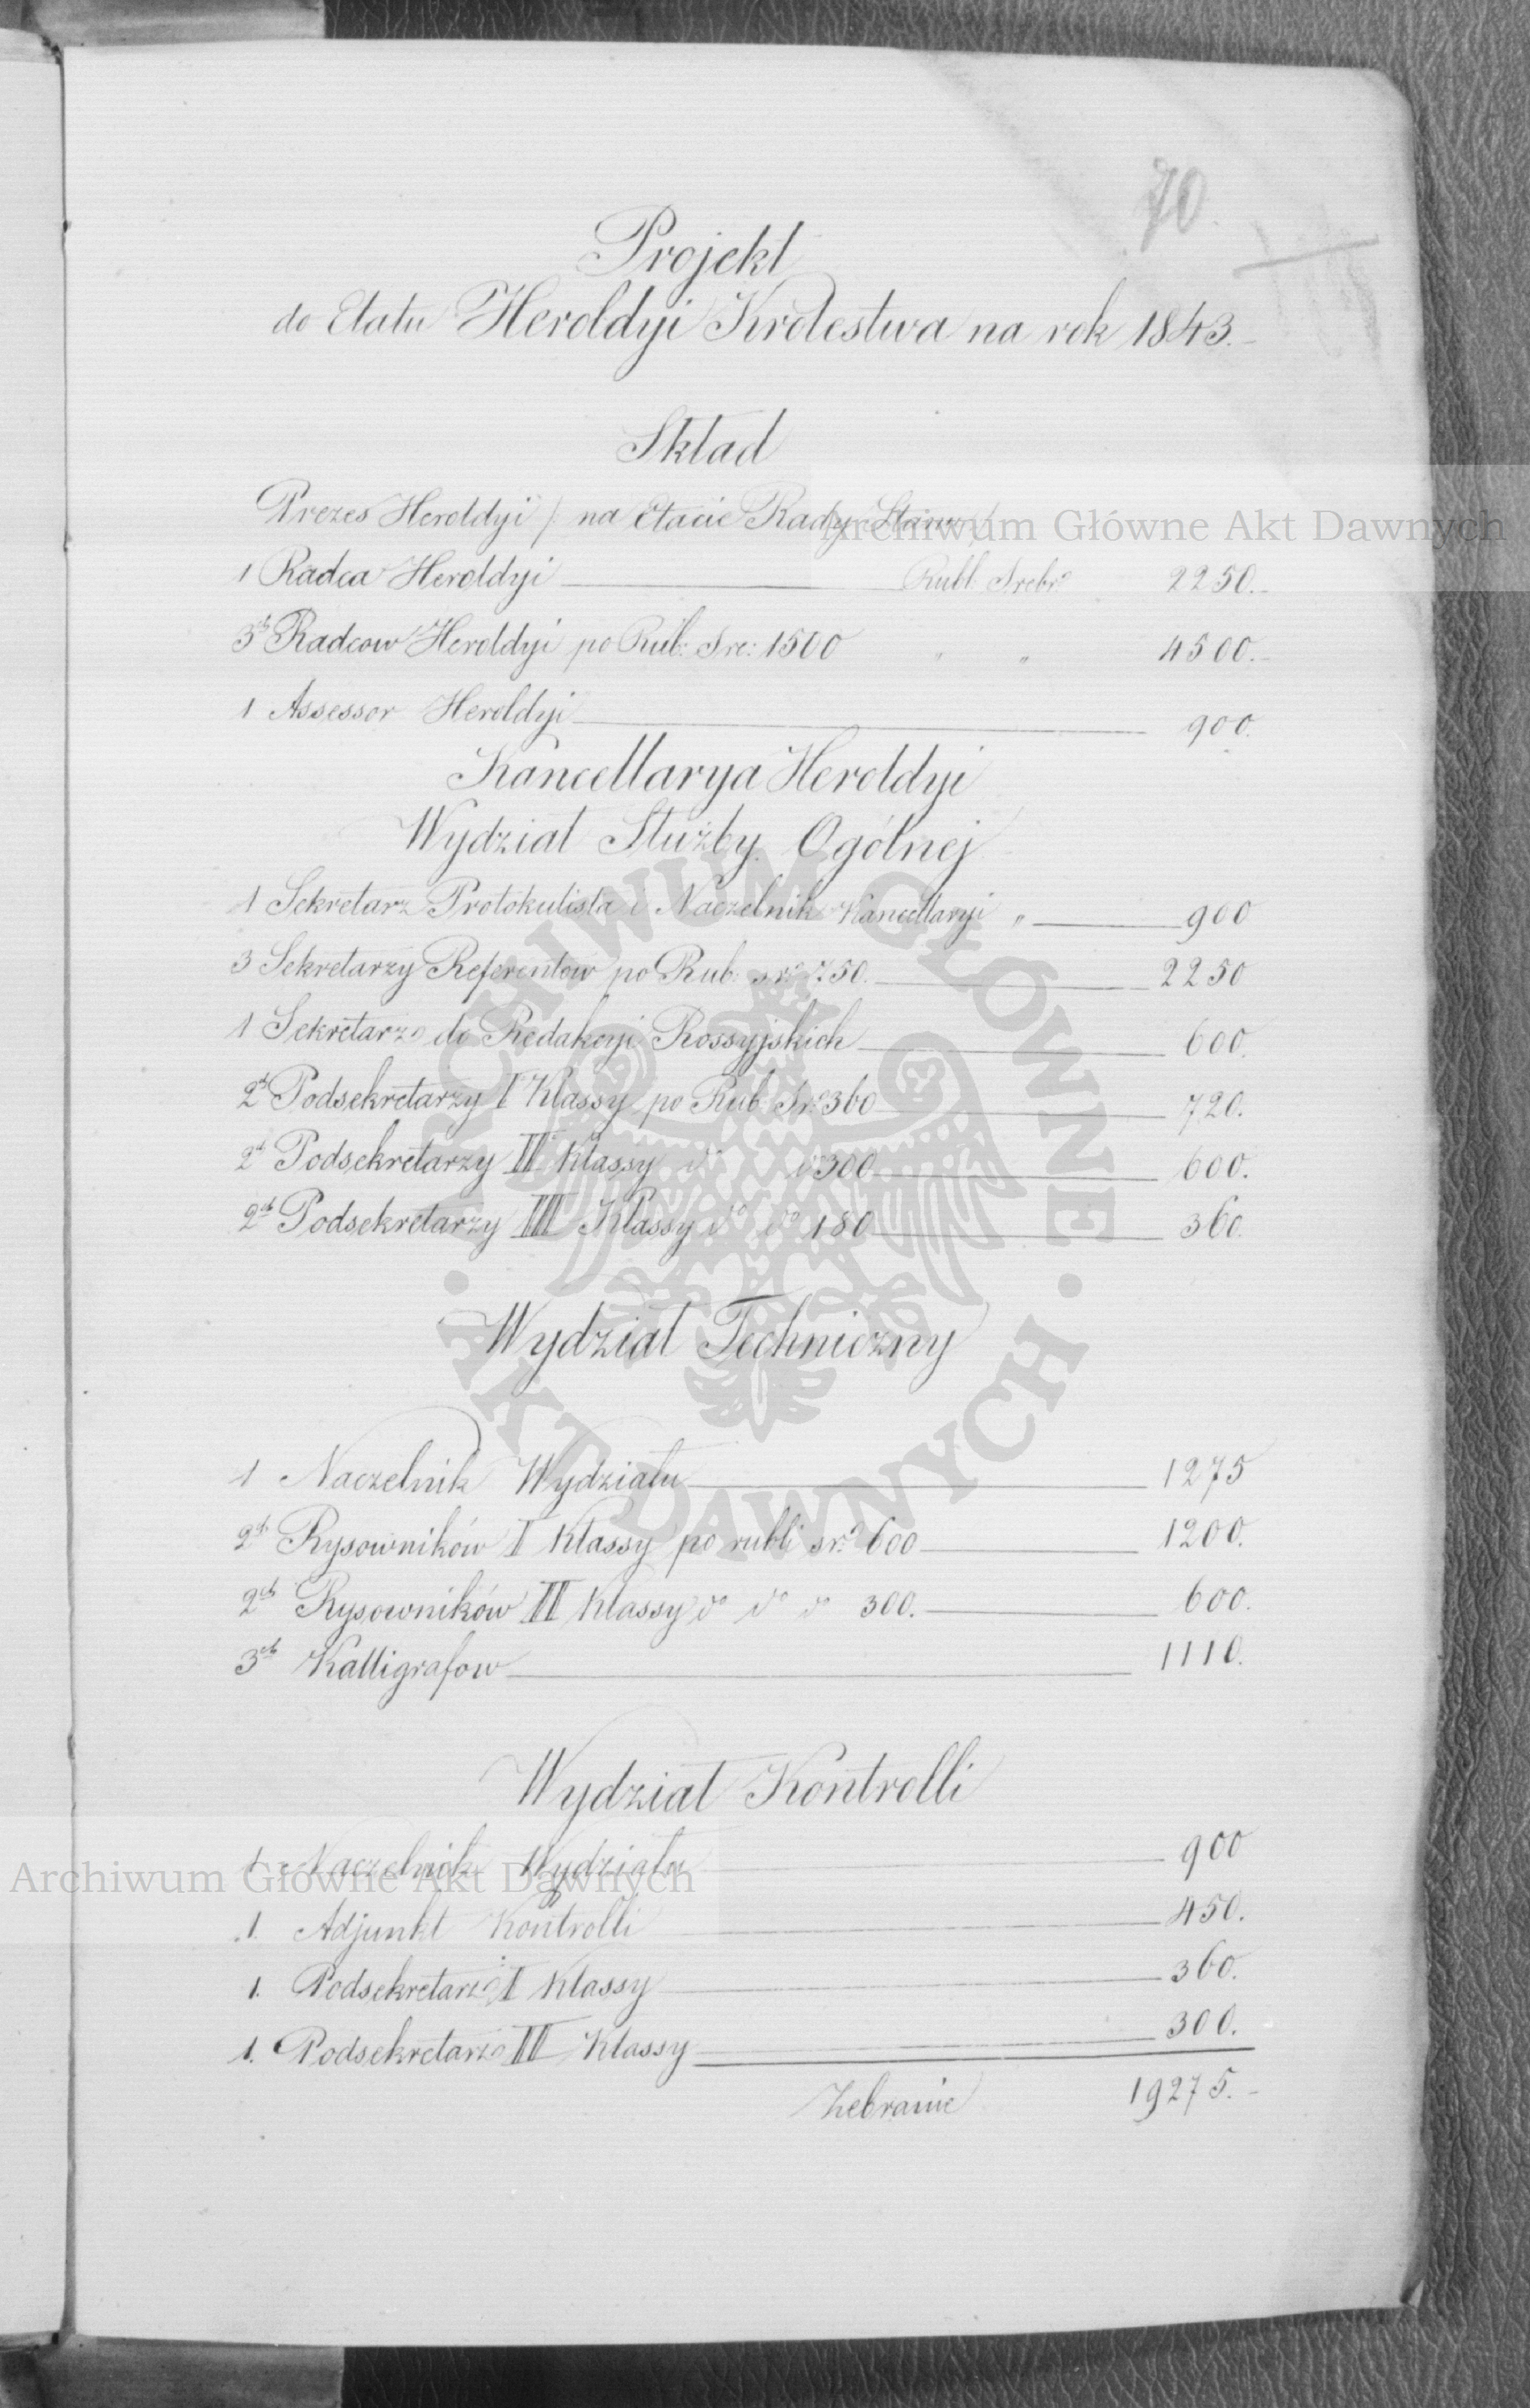 70.
Projekt
do Etatu Heroldyi Królestwa na rok 1843.-
Skład
Prezes Heroldyi /: na Etacie Rady Stanu :/
1 Radca Heroldyi Rubl. Srebr. 2250.-
3ch Radcow Heroldyi po Rub: Sre: 1500 " " 4500.-
1 Assessor Heroldyi 900.
Kancellarya Heroldyi
Wydział Służby Ogólnej
1 Sekretarz Protokulista i Naczelnik Kancellaryi " 900
3 Sekretarzy Referentów po Rub. sr. 750. 2250
1 Sekretarz do Redakcyi Rossyjskich 600.
2ch Podsekretarzy I Klassy po Rub. Sr. 360 720.
2ch Podsekretarzy II Klassy do do 300 600.
2ch Podsekretarzy III Klassy do do 180 360.
Wydział Techniczny
1 Naczelnik Wydziału 1275
2ch Rysowników I Klassy po rubli sr. 600 1200.
2ch Rysowników II Klassy do do do 300. 600.
3ch Kalligrafow 1110.
Wydział Kontrolli
1 Naczelnik Wydziału 900
1. Adjunkt Kontrolli 450.
1. Podsekretarz I Klassy 360.
1. Podsekretarz II Klassy 300.
Zebranie 19275.-
Archiwum Główne Akt Dawnych
ARCHIWUM GŁÓWNE
· AKT DAWNYCH ·
Archiwum Główne Akt Dawnych